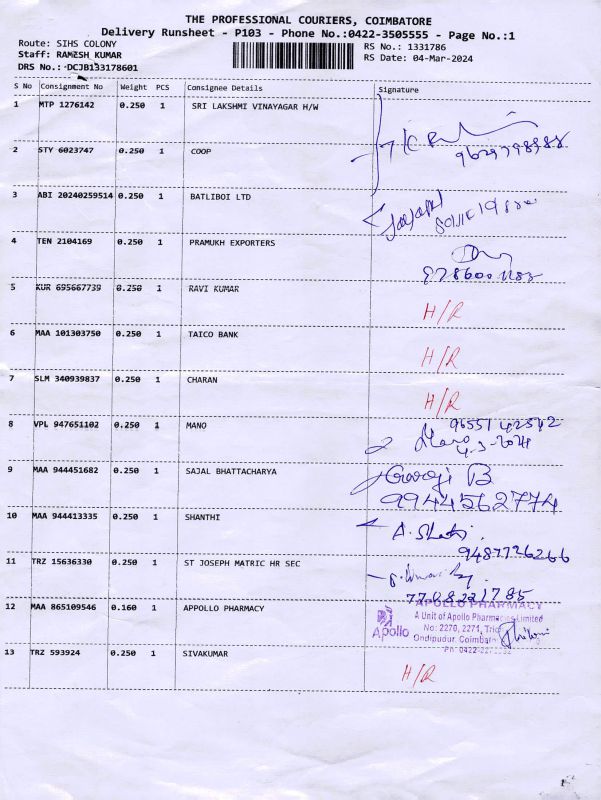 THE PROFESSIONAL COURIERS, COIMBATORE
Delivery Runsheet - P103 - Phone No.:0422-3505555 - Page No.:1
Route: SIHS COLONY
Staff: RAMESH KUMAR
DRS No.: DCJB133178601
RS No.: 1331786
RS Date: 04-Mar-2024
S No Consignment No Weight PCS Consignee Details Signature
1 MTP 1276142 0.250 1 SRI LAKSHMI VINAYAGAR H/W
2 STY 6023747 0.250 1 COOP
3 ABI 20240259514 0.250 1 BATLIBOI LTD
4 TEN 2104169 0.250 1 PRAMUKH EXPORTERS
5 KUR 695667739 0.250 1 RAVI KUMAR H/R
6 MAA 101303750 0.250 1 TAICO BANK H/R
7 SLM 340939837 0.250 1 CHARAN H/R
8 VPL 947651102 0.250 1 MANO
Mano
4-3-2024
9 MAA 944451682 0.250 1 SAJAL BHATTACHARYA
9944562774
10 MAA 944413335 0.250 1 SHANTHI
9487726266
11 TRZ 15636330 0.250 1 ST JOSEPH MATRIC HR SEC
7708221785
12 MAA 865109546 0.160 1 APPOLLO PHARMACY
APOLLO PHARMACY
A Unit of Apollo Pharmacies Limited
Apollo
No: 2270, 2271,
Ondipudur, Coimbatore
13 TRZ 593924 0.250 1 SIVAKUMAR H/R